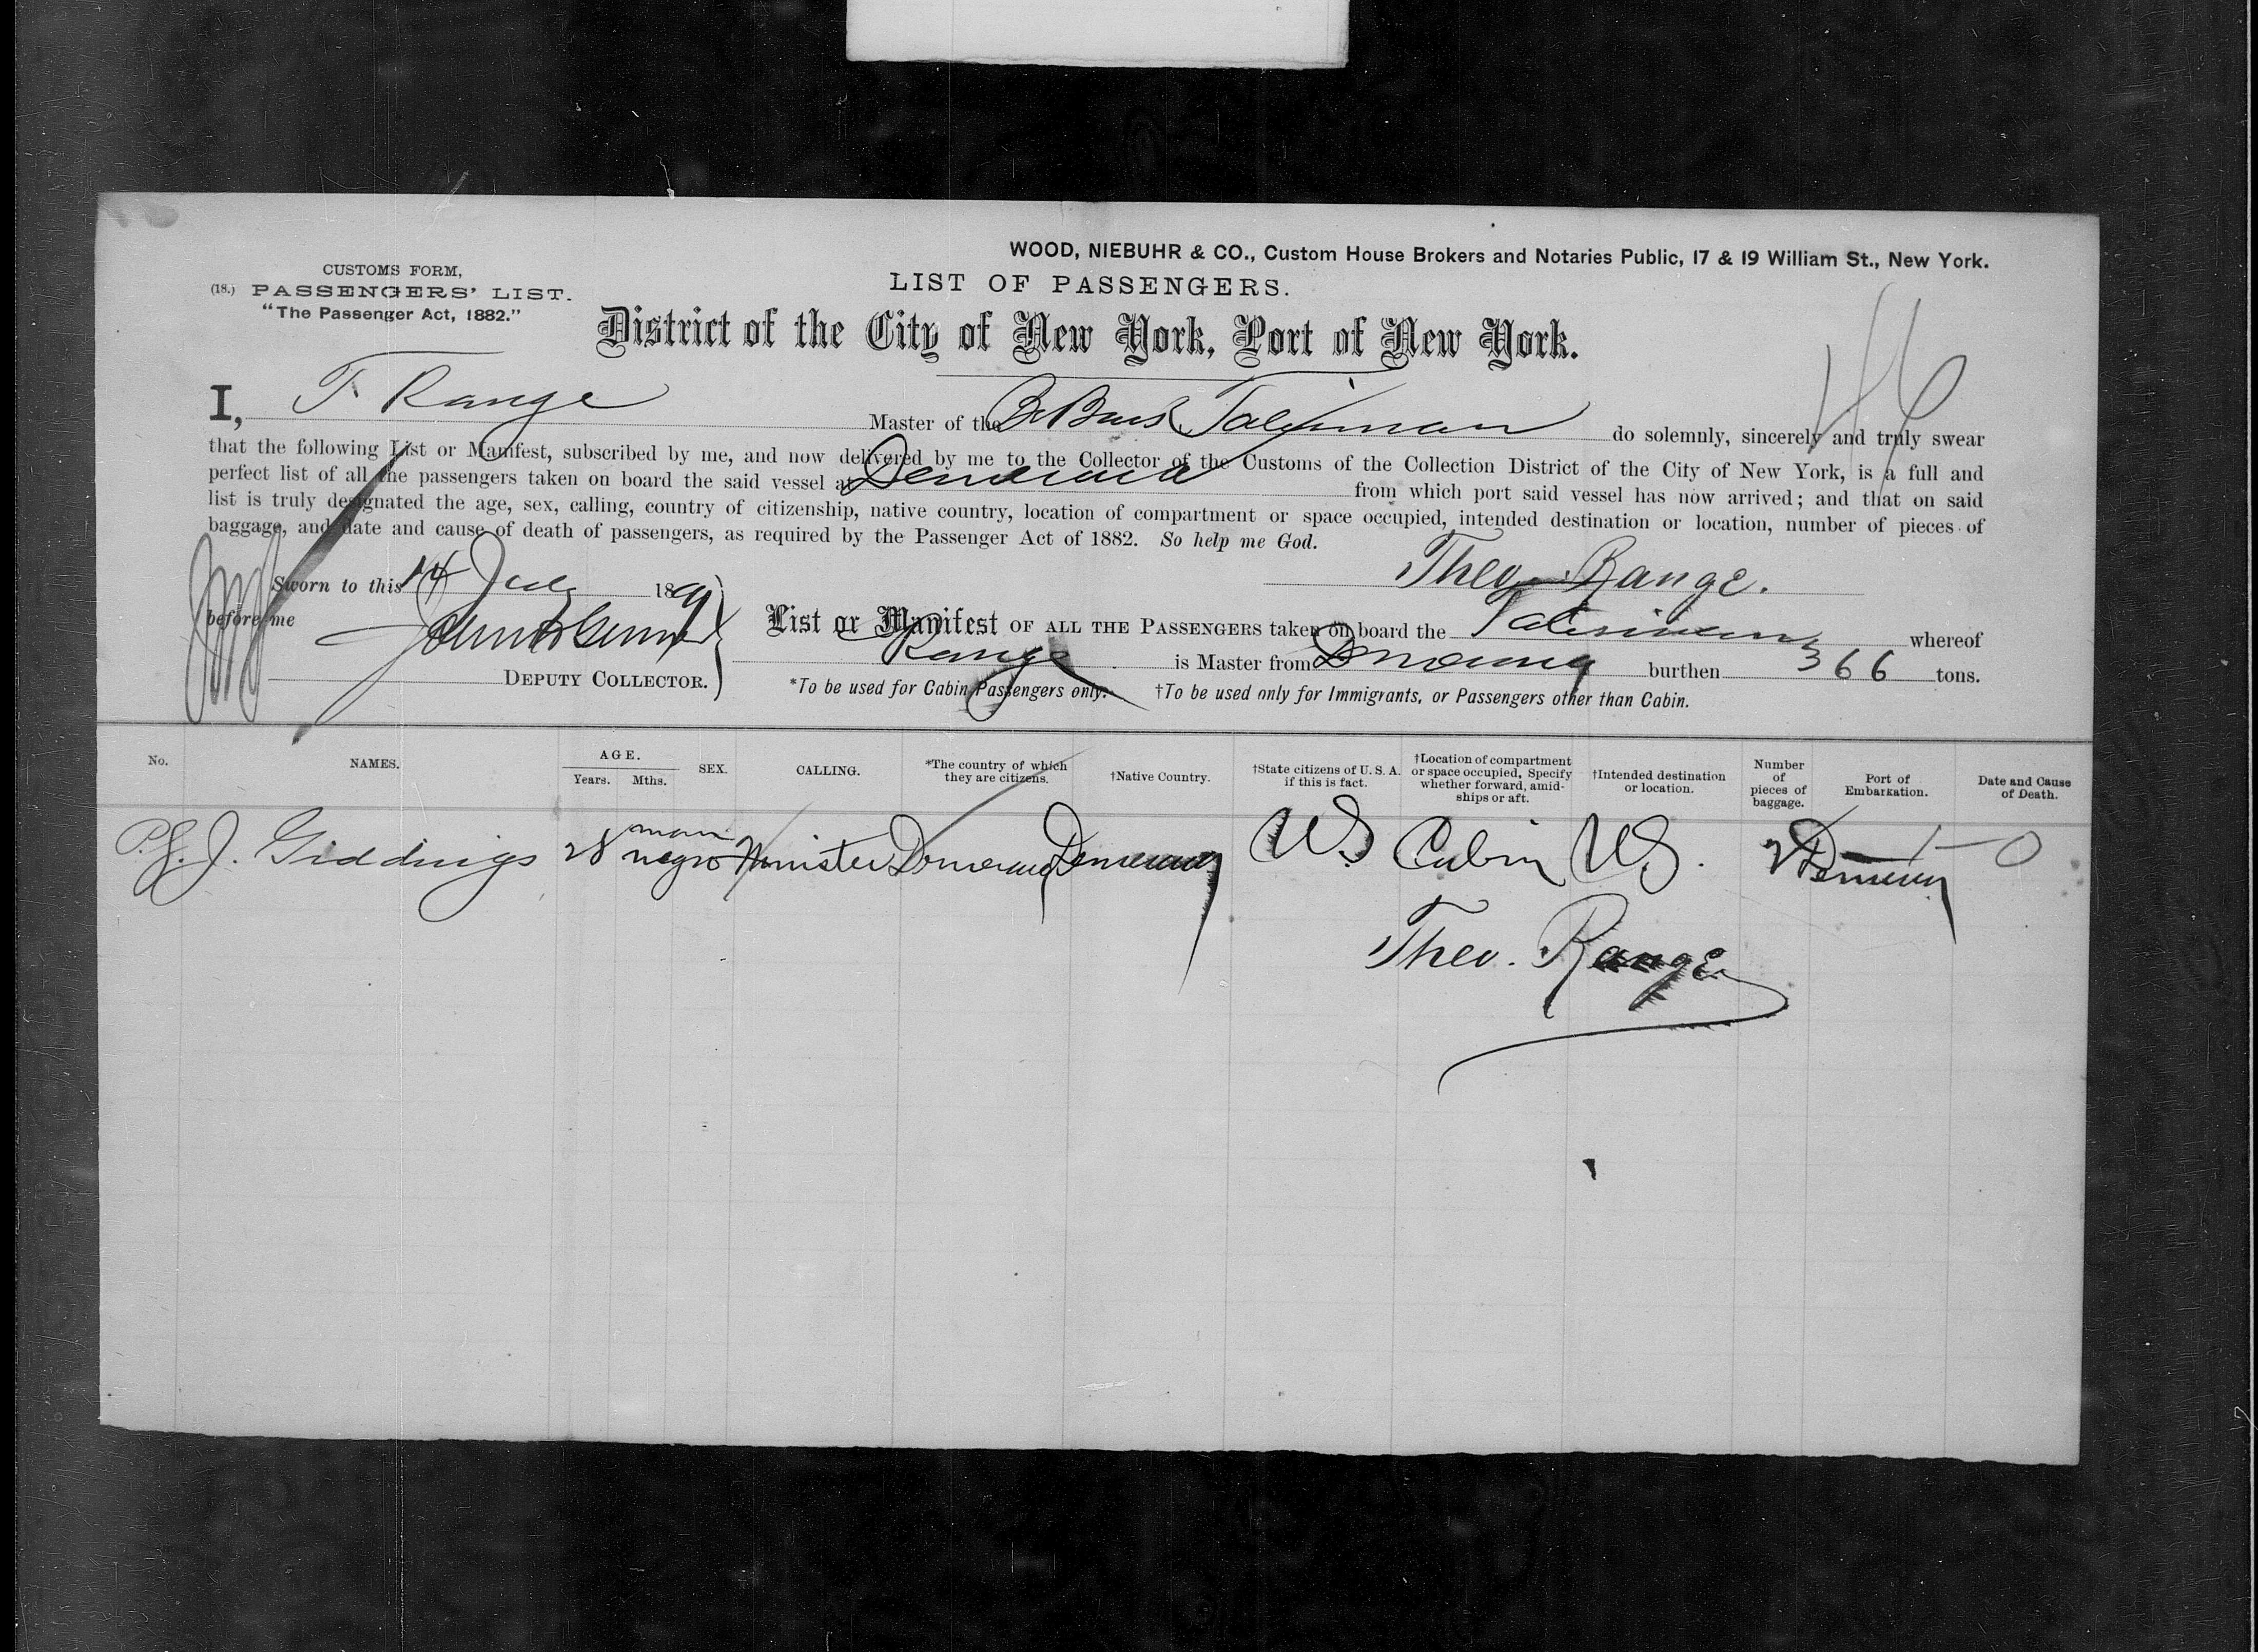 WOOD, NIEBUHR & CO., Custom House Brokers and Notaries Public, 17 & 19 William St., New York.
CUSTOMS FORM,
(18.) PASSENGERS' LIST.
"The Passenger Act, 1882."
LIST OF PASSENGERS.
District of the City of New York, Port of New York.
46
I, T. Range Master of the Br Bark Talisman do solemnly, sincerely and truly swear
that the following List or Manifest, subscribed by me, and now delivered by me to the Collector of the Customs of the Collection District of the City of New York, is a full and
perfect list of all the passengers taken on board the said vessel at Demerara from which port said vessel has now arrived; and that on said
list is truly designated the age, sex, calling, country of citizenship, native country, location of compartment or space occupied, intended destination or location, number of pieces of
baggage, and date and cause of death of passengers, as required by the Passenger Act of 1882. So help me God.
Theo. Range.
Sworn to this 14 July 189
before me
DEPUTY COLLECTOR.
List or Manifest OF ALL THE PASSENGERS taken on board the Talisman whereof
Range is Master from Demerara burthen 366 tons.
*To be used for Cabin Passengers only. †To be used only for Immigrants, or Passengers other than Cabin.
No. NAMES. AGE. Years. Mths. SEX. CALLING. *The country of which they are citizens. †Native Country. †State citizens of U. S. A. if this is fact. †Location of compartment or space occupied, Specify whether forward, amidships or aft. †Intended destination or location. Number of pieces of baggage. Port of Embarkation. Date and Cause of Death.
J. Giddings 28 man negro Minister Demerara Demerara US Cabin US. 2 Demerara
Theo. Range